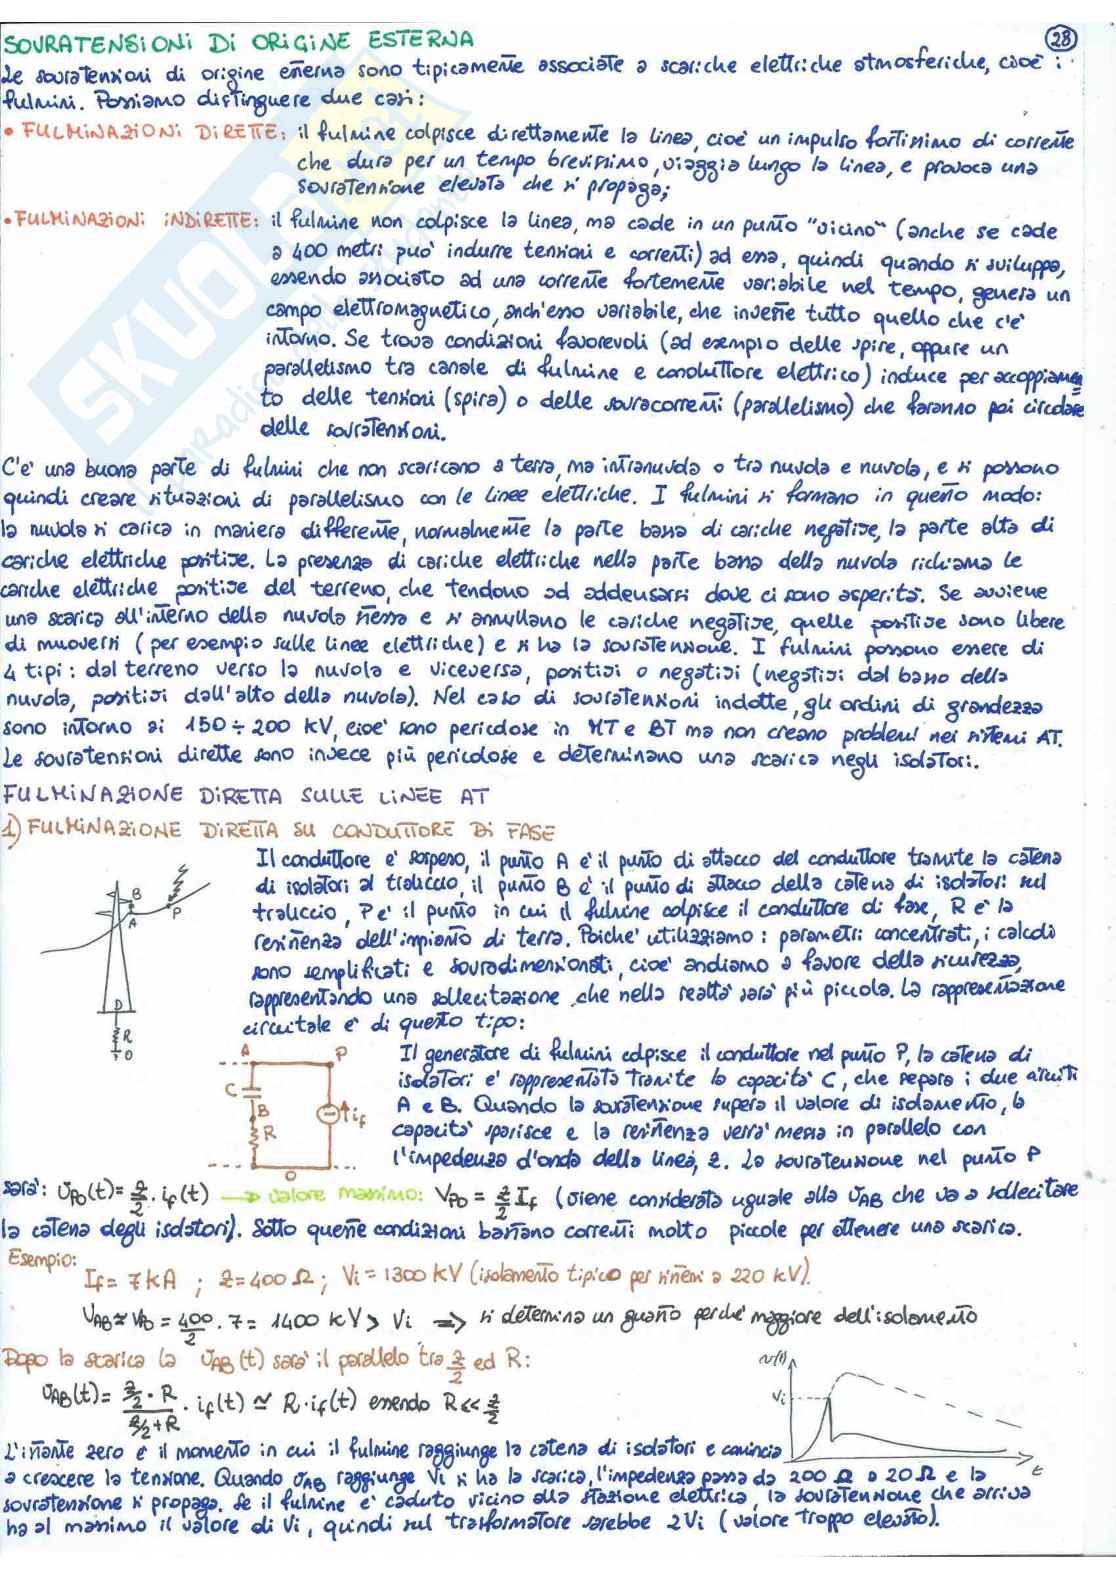 SOVRATENSIONI DI ORIGINE ESTERNA
28
Le sovratensioni di origine esterna sono tipicamente associate a scariche elettriche atmosferiche, cioè i
fulmini. Possiamo distinguere due casi:
• FULMINAZIONI DIRETTE: il fulmine colpisce direttamente la linea, cioè un impulso fortissimo di corrente
che dura per un tempo brevissimo, viaggia lungo la linea, e provoca una
sovratensione elevata che si propaga;
• FULMINAZIONI INDIRETTE: il fulmine non colpisce la linea, ma cade in un punto "vicino" (anche se cade
a 400 metri può indurre tensioni e correnti) ad essa, quindi quando si sviluppa,
essendo associato ad una corrente fortemente variabile nel tempo, genera un
campo elettromagnetico, anch'esso variabile, che investe tutto quello che c'è
intorno. Se trova condizioni favorevoli (ad esempio delle spire, oppure un
parallelismo tra canale di fulmine e conduttore elettrico) induce per accoppiamen
to delle tensioni (spira) o delle sovracorrenti (parallelismo) che faranno poi circolare
delle sovratensioni.
C'è una buona parte di fulmini che non scaricano a terra, ma intranuvola o tra nuvola e nuvola, e si possono
quindi creare situazioni di parallelismo con le linee elettriche. I fulmini si formano in questo modo:
la nuvola si carica in maniera differente, normalmente la parte bassa di cariche negative, la parte alta di
cariche elettriche positive. La presenza di cariche elettriche nella parte bassa della nuvola richiama le
cariche elettriche positive del terreno, che tendono ad addensarsi dove ci sono asperità. Se avviene
una scarica all'interno della nuvola stessa e si annullano le cariche negative, quelle positive sono libere
di muoversi (per esempio sulle linee elettriche) e si ha la sovratensione. I fulmini possono essere di
4 tipi: dal terreno verso la nuvola e viceversa, positivi o negativi (negativi dal basso della
nuvola, positivi dall'alto della nuvola). Nel caso di sovratensioni indotte, gli ordini di grandezza
sono intorno ai 150 ÷ 200 kV, cioè sono pericolose in MT e BT ma non creano problemi nei sistemi AT.
Le sovratensioni dirette sono invece più pericolose e determinano una scarica negli isolatori.
FULMINAZIONE DIRETTA SULLE LINEE AT
1) FULMINAZIONE DIRETTA SU CONDUTTORE DI FASE
Il conduttore è sospeso, il punto A è il punto di attacco del conduttore tramite la catena
di isolatori al traliccio, il punto B è il punto di attacco della catena di isolatori sul
traliccio, P è il punto in cui il fulmine colpisce il conduttore di fase, R è la
resistenza dell'impianto di terra. Poiché utilizziamo i parametri concentrati, i calcoli
sono semplificati e sovradimensionati, cioè andiamo a favore della sicurezza,
rappresentando una sollecitazione che nella realtà sarà più piccola. La rappresentazione
circuitale è di questo tipo:
B
A
P
D
R
0
Il generatore di fulmini colpisce il conduttore nel punto P, la catena di
isolatori è rappresentata tramite la capacità C, che separa i due circuiti
A e B. Quando la sovratensione supera il valore di isolamento, la
capacità sparisce e la resistenza verrà messa in parallelo con
l'impedenza d'onda della linea, z. La sovratensione nel punto P
A
P
C
B
R
if
0
sarà: vPO(t) = z/2 · if(t) → valore massimo: VPO = z/2 If (viene considerata uguale alla vAB che va a sollecitare
la catena degli isolatori). Sotto queste condizioni bastano correnti molto piccole per ottenere una scarica.
Esempio:
If = 7 kA ; z = 400 Ω ; Vi = 1300 kV (isolamento tipico per sistemi a 220 kV).
VAB ≈ VPO = 400/2 · 7 = 1400 kV > Vi ⇒ si determina un guasto perché maggiore dell'isolamento
Dopo la scarica la vAB(t) sarà il parallelo tra z/2 ed R:
vAB(t) = (z/2 · R)/(z/2 + R) · if(t) ≃ R · if(t) essendo R << z/2
v(t)
Vi
t
L'istante zero è il momento in cui il fulmine raggiunge la catena di isolatori e comincia
a crescere la tensione. Quando vAB raggiunge Vi si ha la scarica, l'impedenza passa da 200 Ω a 20 Ω e la
sovratensione si propaga. Se il fulmine è caduto vicino alla stazione elettrica, la sovratensione che arriva
ha al massimo il valore di Vi, quindi sul trasformatore sarebbe 2Vi (valore troppo elevato).